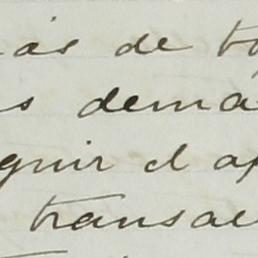 ás de to
s demá
guir el ap
transac